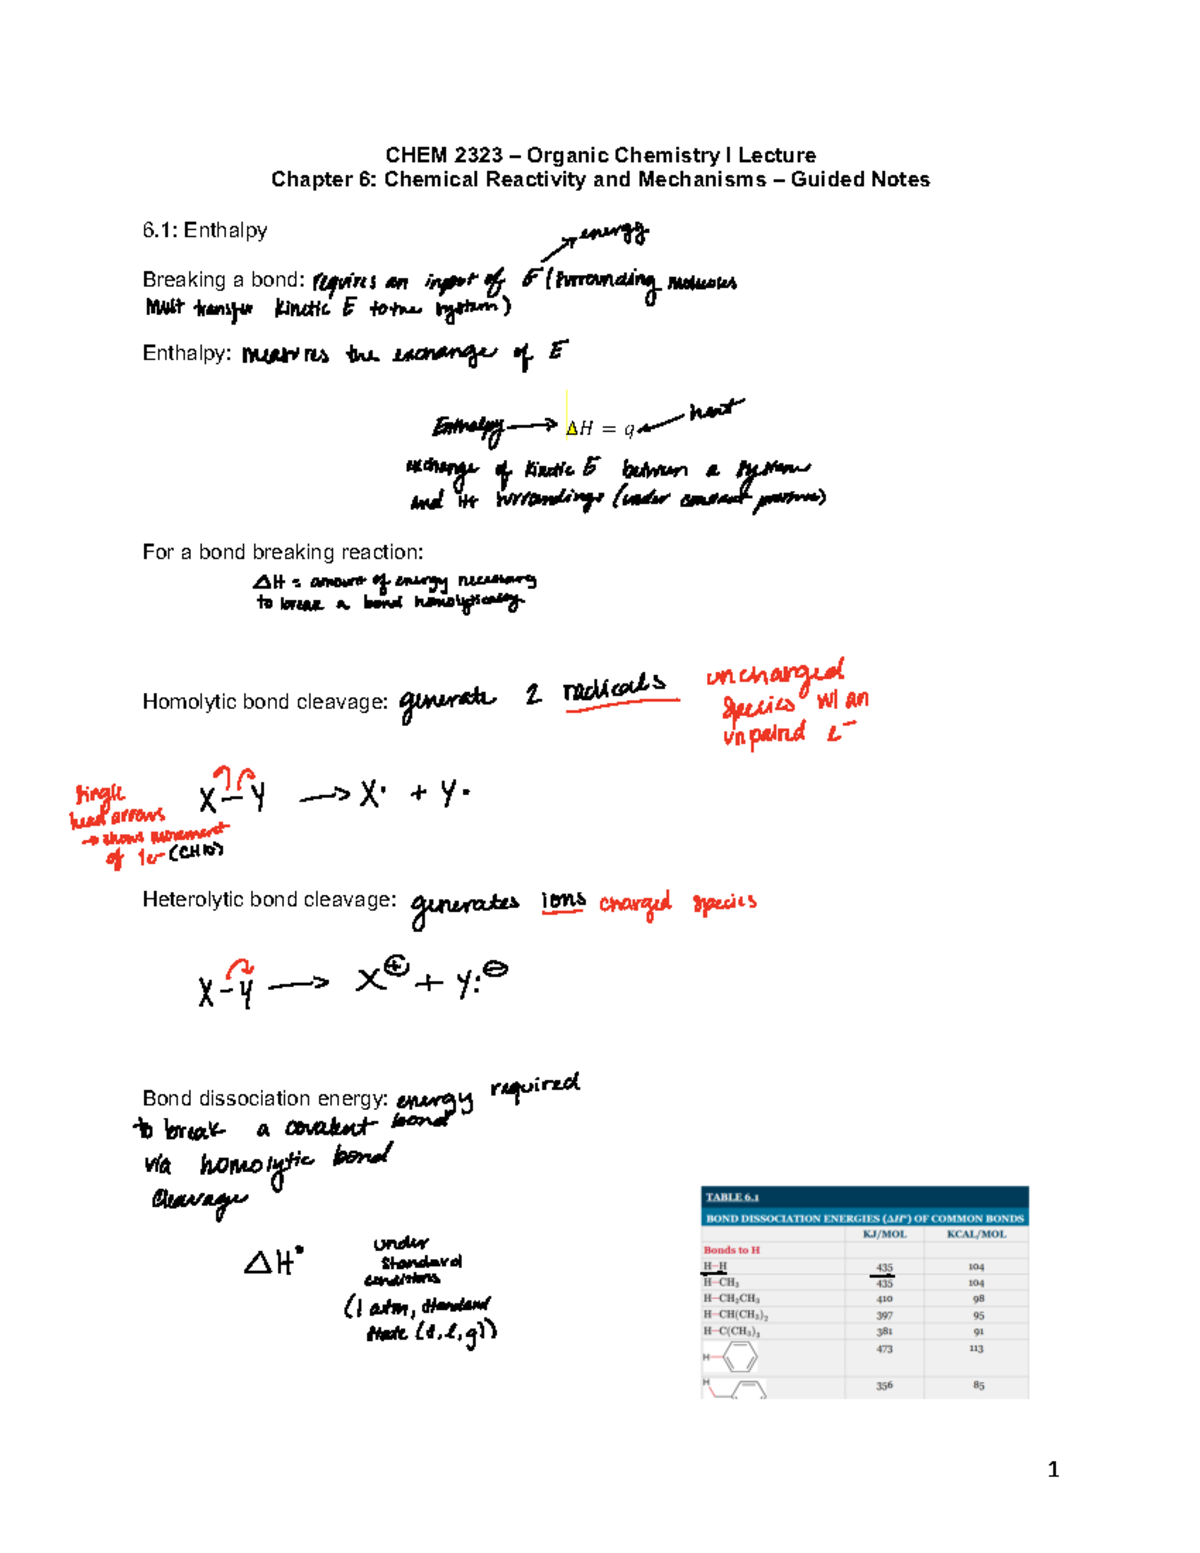 CHEM 2323 – Organic Chemistry I Lecture
Chapter 6: Chemical Reactivity and Mechanisms – Guided Notes
6.1: Enthalpy
energy
Breaking a bond: requires an input of E (surrounding molecules
must transfer kinetic E to the system)
Enthalpy: measures the exchange of E
Enthalpy → ΔH = q ← heat
exchange of kinetic E between a system
and its surroundings (under constant pressure)
For a bond breaking reaction:
ΔH = amount of energy necessary
to break a bond homolytically
Homolytic bond cleavage: generate 2 radicals
uncharged
species w/ an
unpaired e⁻
single
head arrows
→ shows movement
of 1e⁻ (CH10)
X–Y → X· + Y·
Heterolytic bond cleavage: generates ions charged species
X–Y → X⊕ + Y:⊖
Bond dissociation energy: energy required
to break a covalent bond
via homolytic bond
cleavage
ΔH°
under
standard
conditions
(1 atm, standard
state (s, l, g))
TABLE 6.1
BOND DISSOCIATION ENERGIES (ΔH°) OF COMMON BONDS
KJ/MOL KCAL/MOL
Bonds to H
H–H 435 104
H–CH₃ 435 104
H–CH₂CH₃ 410 98
H–CH(CH₃)₂ 397 95
H–C(CH₃)₃ 381 91
H 473 113
H 356 85
1